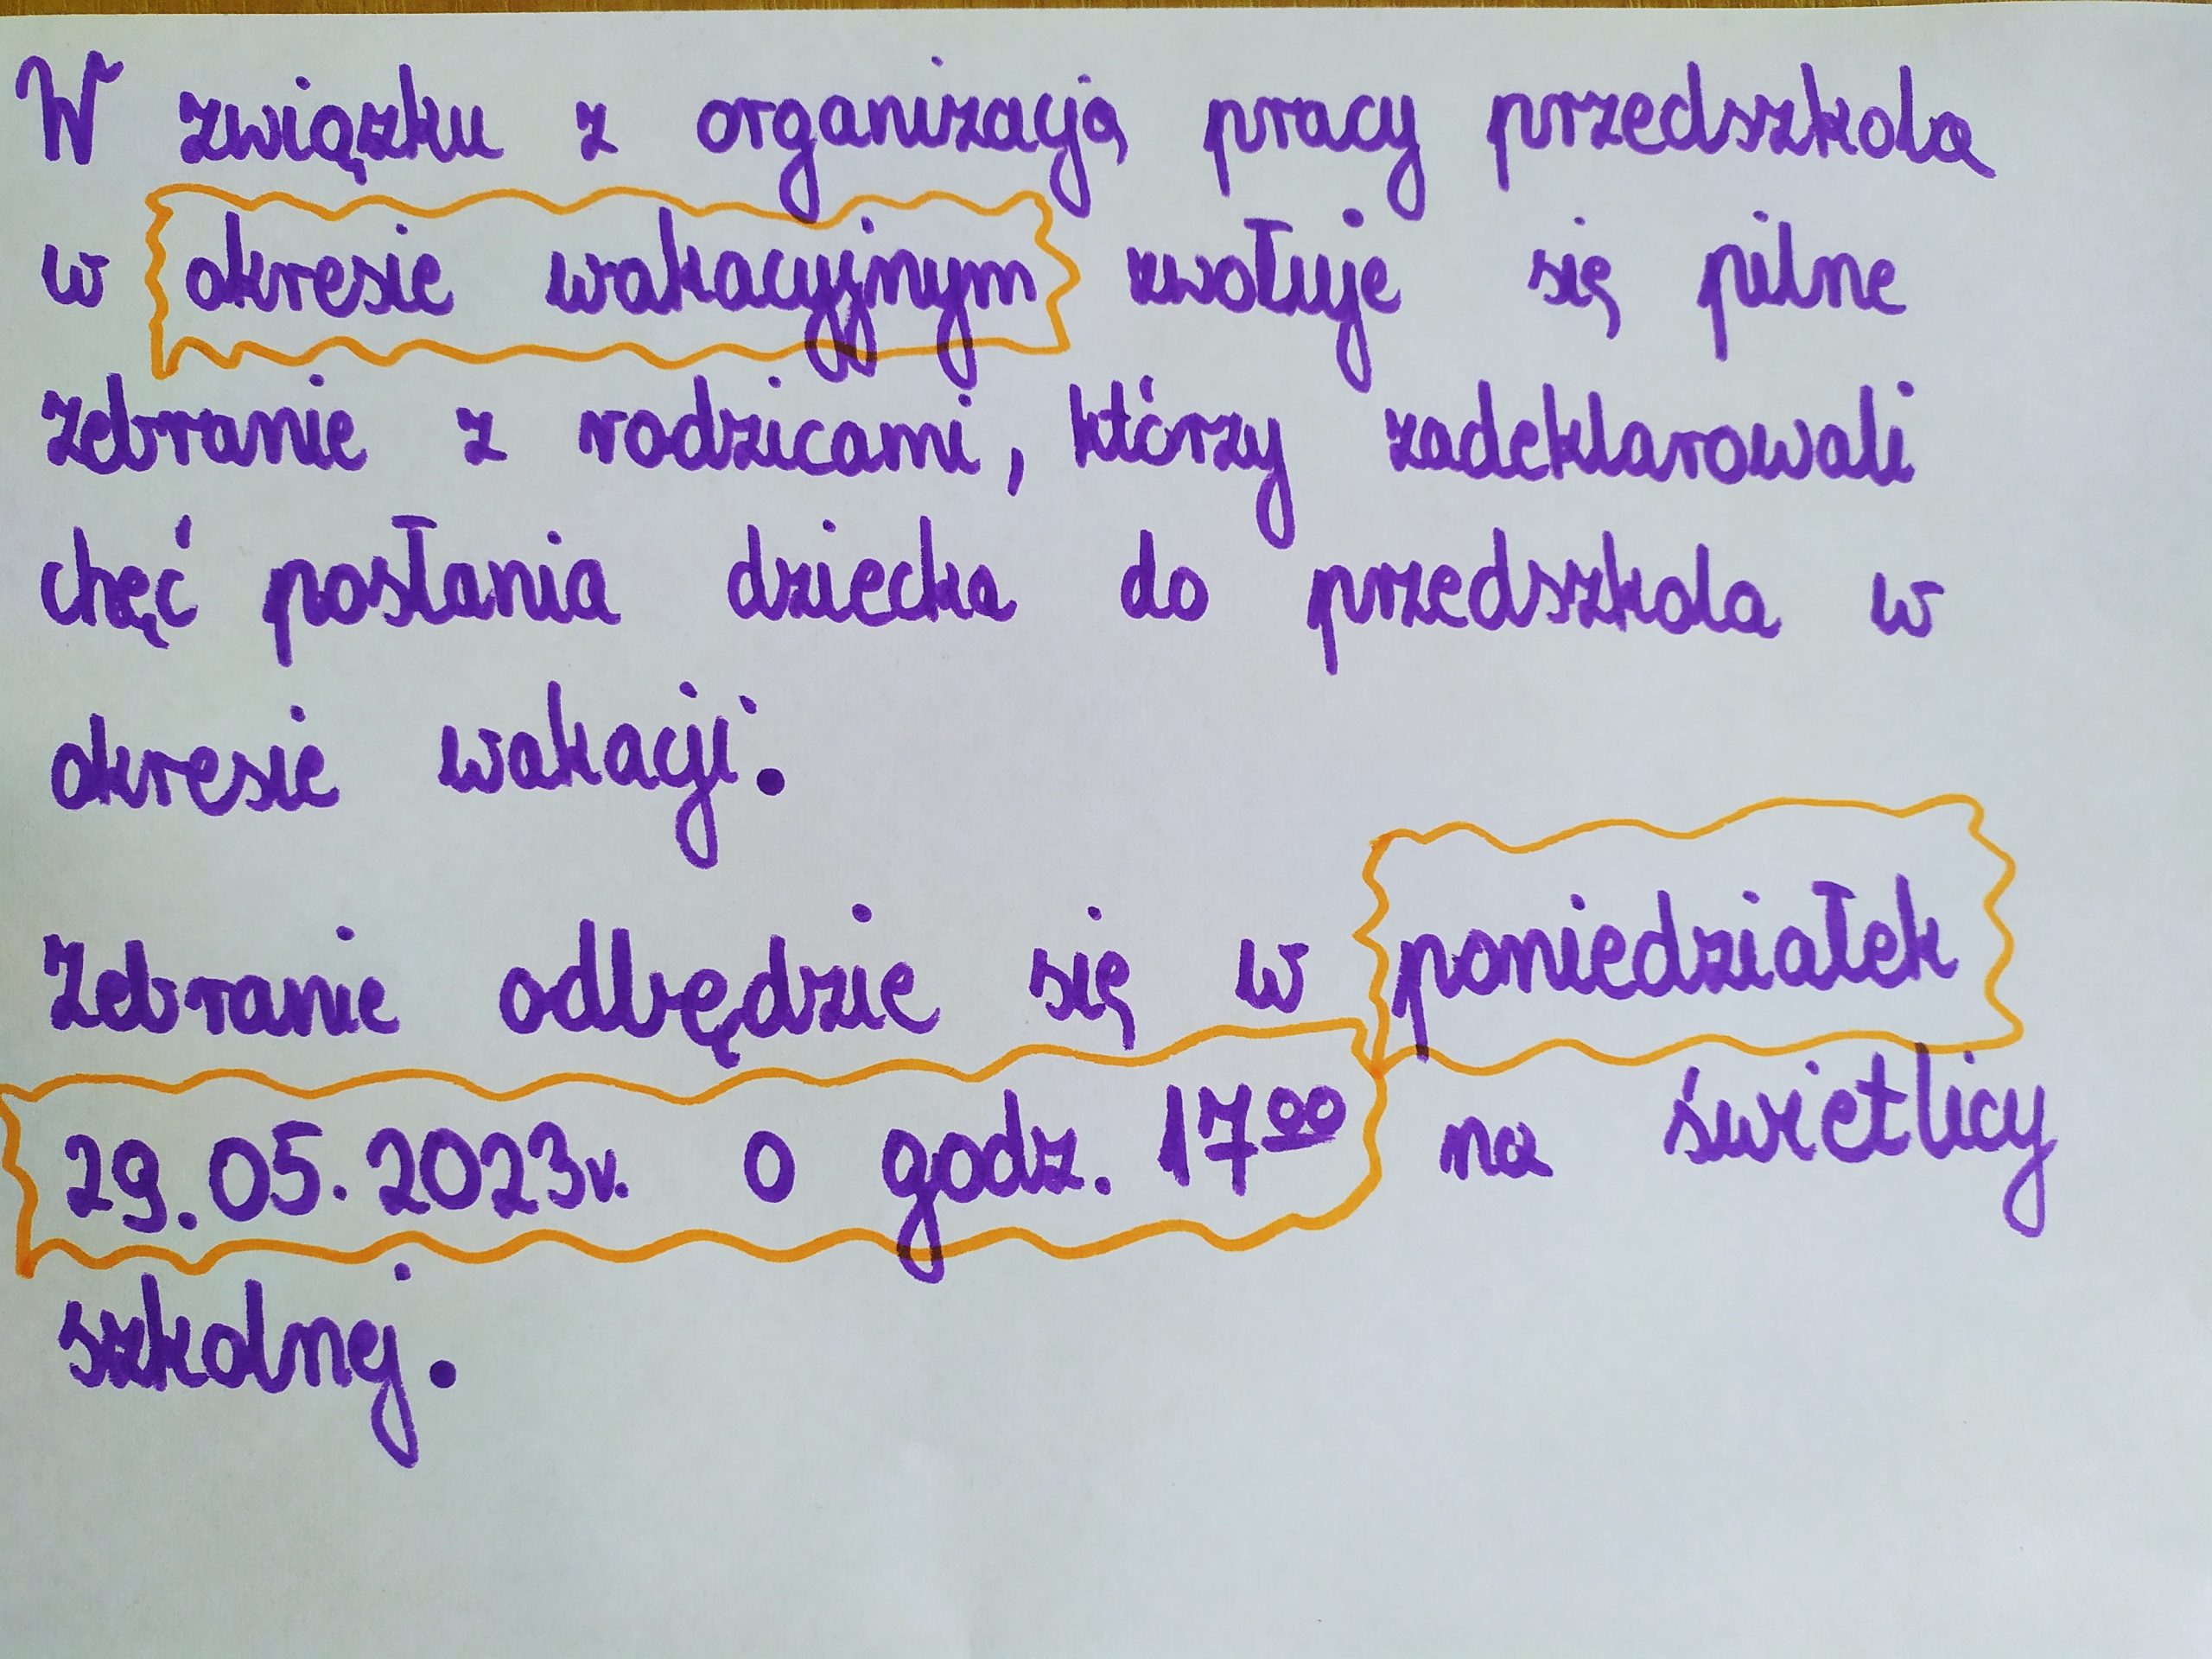 W związku z organizacją pracy przedszkola
w okresie wakacyjnym zwołuje się pilne
zebranie z rodzicami, którzy zadeklarowali
chęć posłania dziecka do przedszkola w
okresie wakacji.
Zebranie odbędzie się w poniedziałek
29.05.2023r. o godz. 17⁰⁰ na świetlicy
szkolnej.